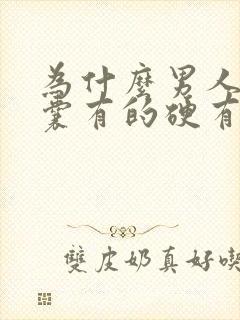 為什麼男人
囊有的硬有
雙皮奶真好喫